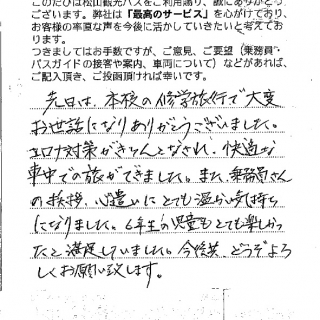 このたびは松山観光バスをご利用賜り、誠にありがとう
ございます。弊社は「最高のサービス」を心がけており、
お客様の率直な声を今後に活かしていきたいと考えてお
ります。
つきましてはお手数ですが、ご意見、ご要望（乗務員・
バスガイドの接客や案内、車両について）などがあれば、
ご記入頂き、ご投函頂ければ幸いです。
先日は、本校の修学旅行で大変
お世話になりありがとうございました。
コロナ対策がきちんとなされ、快適な
車中での旅ができました。また、乗務員さん
の挨拶、心遣いにとても温かい気持ち
になりました。6年生の児童もとても楽しかっ
たと満足していました。今後共、どうぞよろ
しくお願い致します。